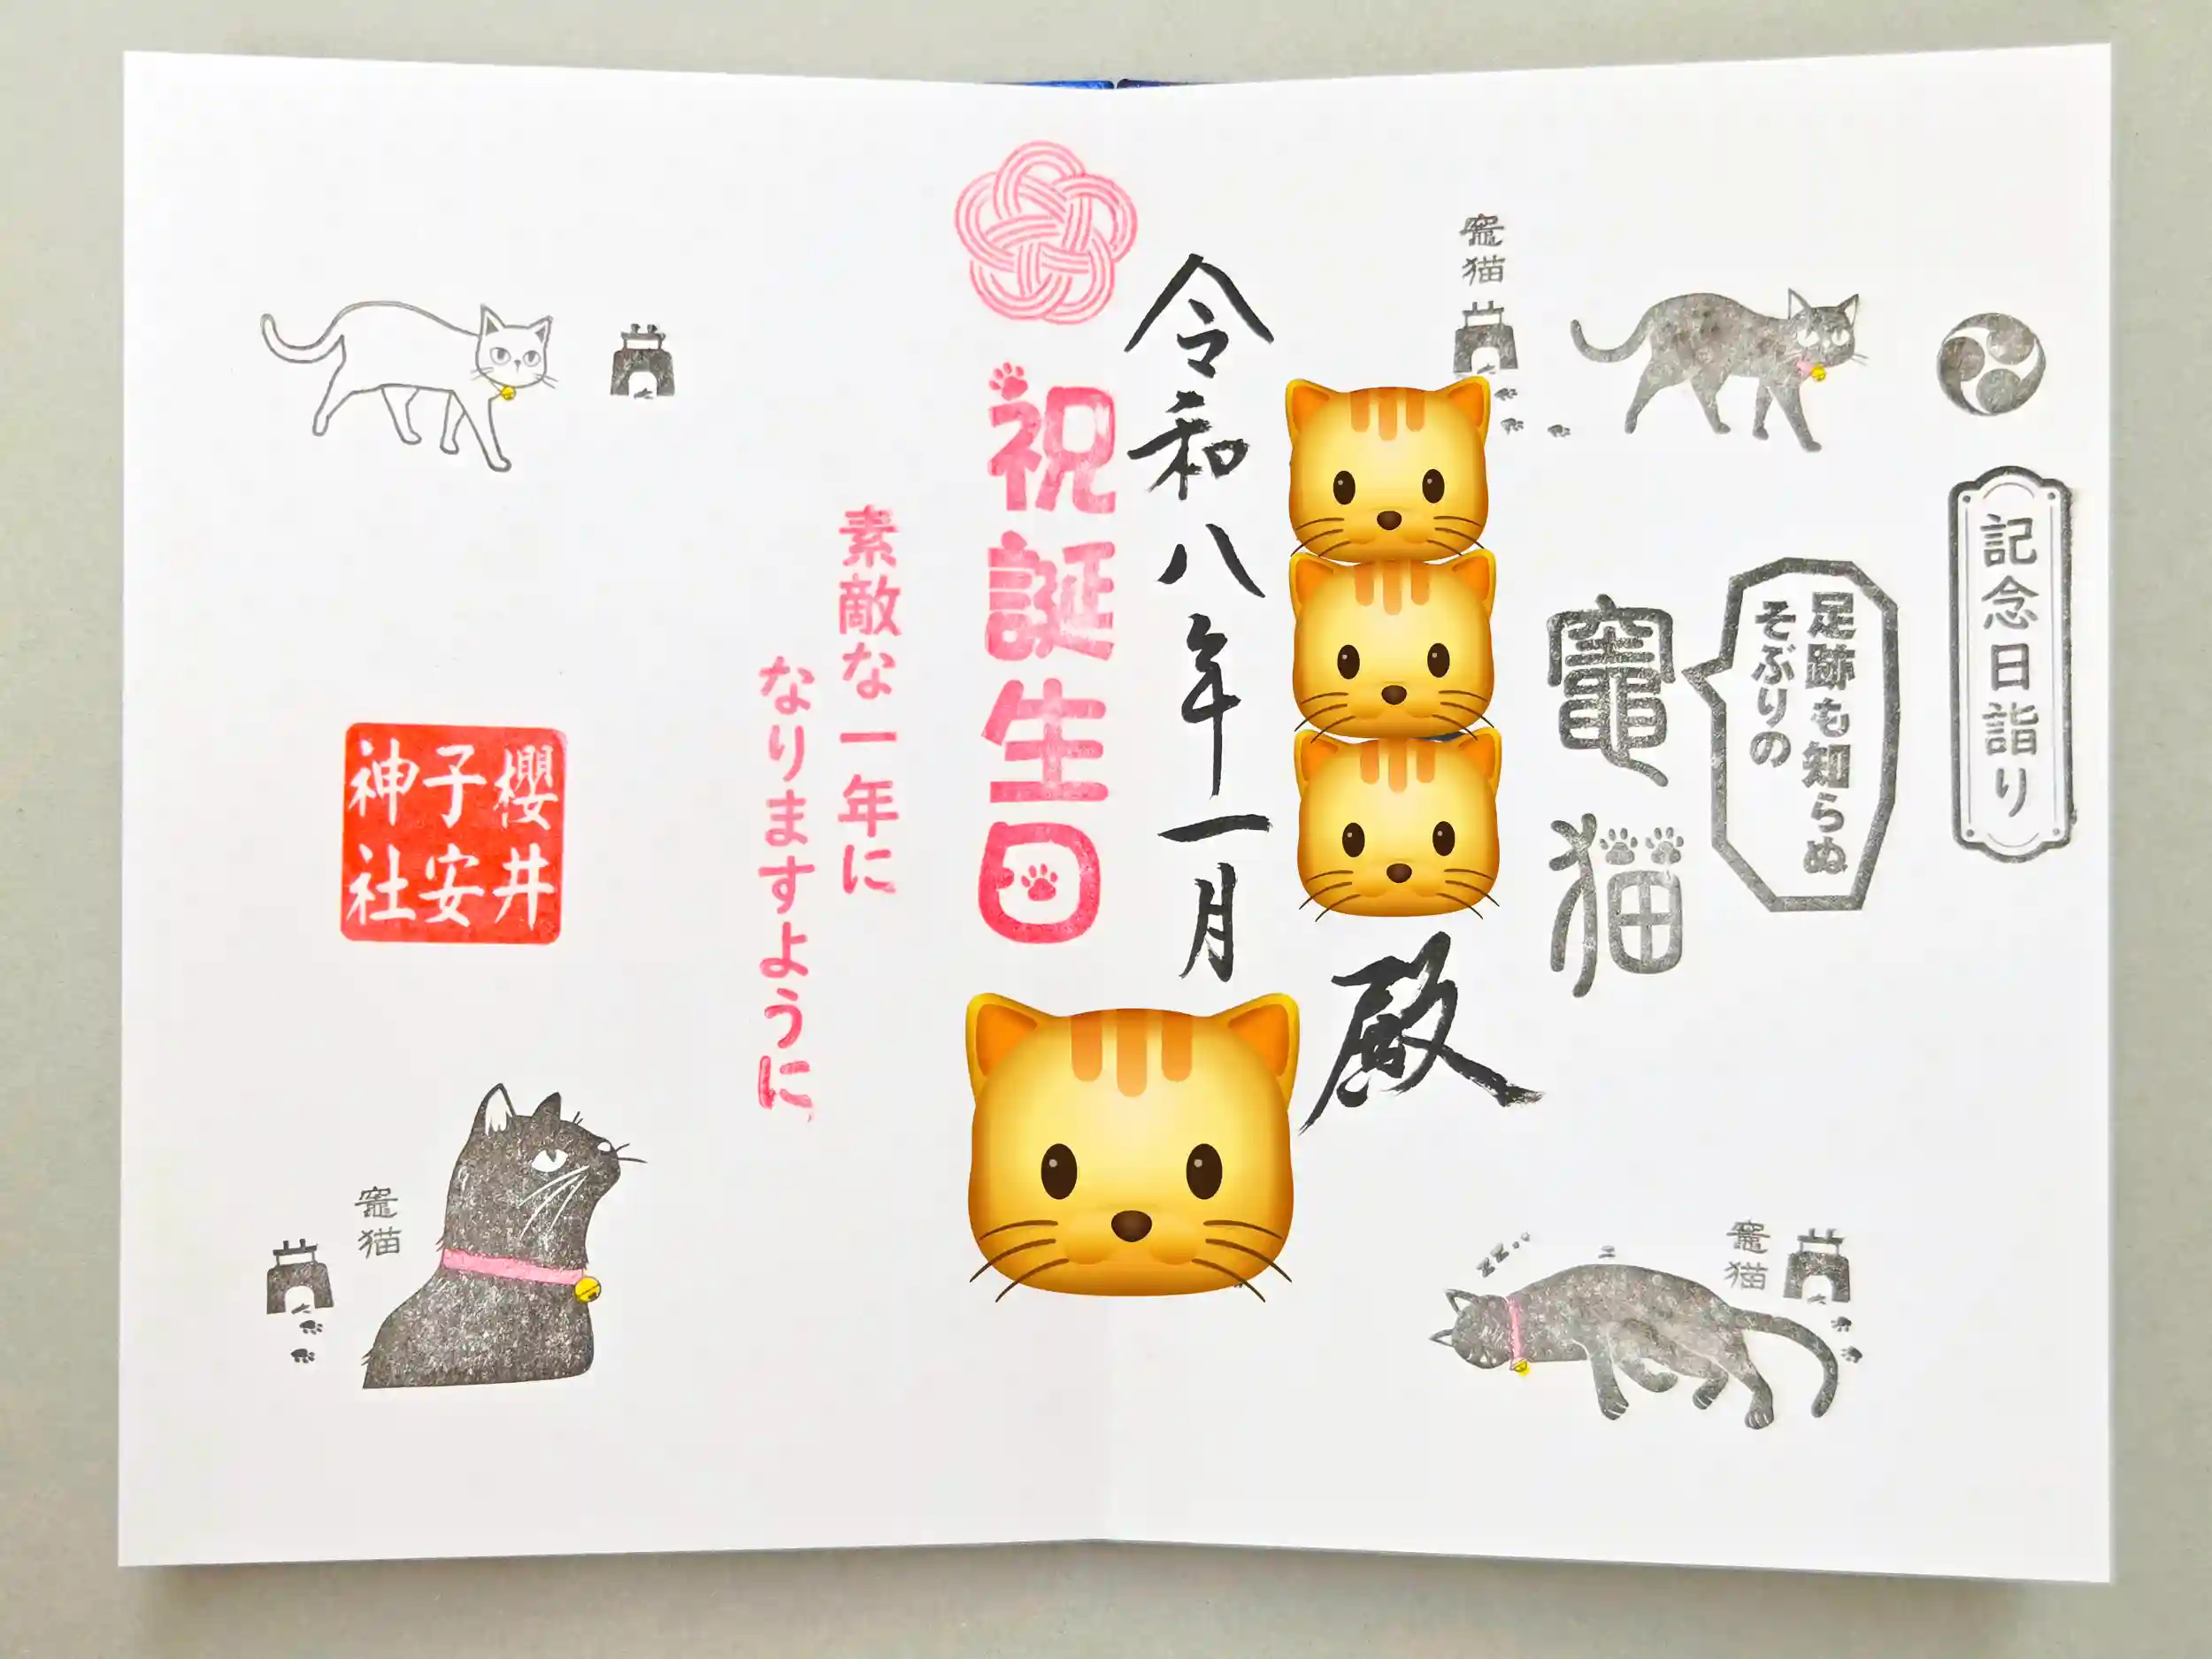 記念日詣り
足跡も知らぬ
そぶりの
竈猫
竈猫
殿
令和八年一月
祝誕生日
素敵な一年に
なりますように
櫻井
子安
神社
竈猫
zz
竈猫